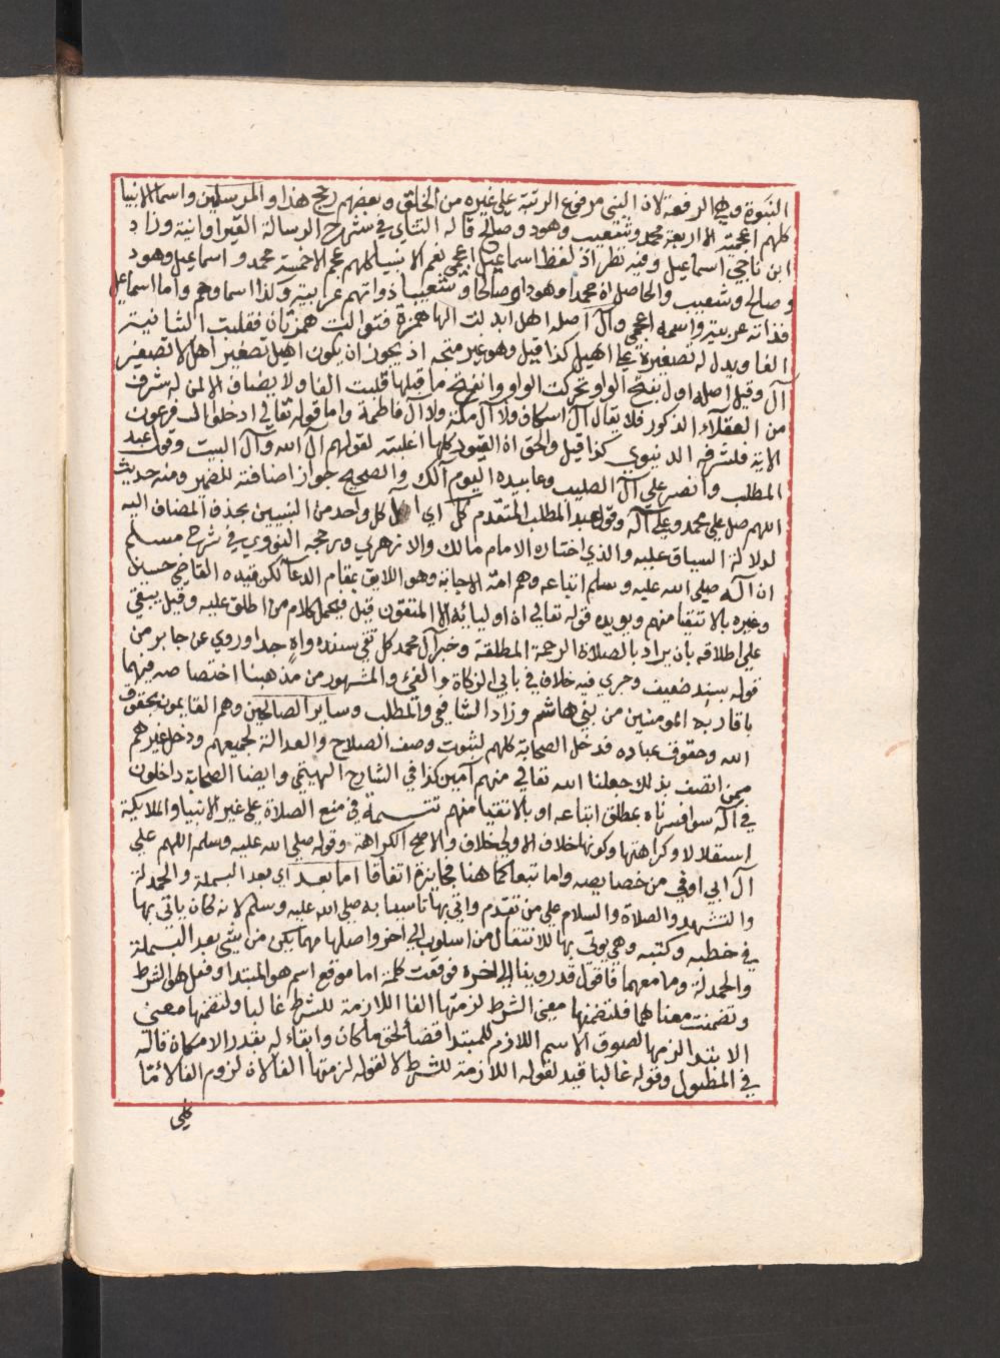 النبوة وهي الرفعة لان النبي مرفوع الرتبة علي غيره من الخلق وبعضهم رجح هذا والمرسلين واسما الانبيا
كلهم اعجمية الا اربعة محمد وشعيب وهود وصالح قاله التتاي في شرح الرسالة القيراوانية وزاد
ابن ناجي اسماعيل وفيه نظر اذ لفظ اسماعيل اعجمي نعم الانبيا كلهم عجم الاخمسة محمد واسماعيل وهود
وصالح وشعيب والحاصل ان محمدا وهودا وصالحا وشعيبا ذواتهم عربية وكذا اسماوهم واما اسماعيل
فذاته عربية واسمه اعجمي وآل اصله اهل ابدلت الها همزة فتوالت همزتان فقلبت الثانية
الفا ويدل له تصغيره علي اهيل كذا قيل وهو غير متجه اذ يجوز ان يكون اهيل تصغير اهل لا تصغير
آل وقيل اصله اول بفتح الواو تحركت الواو وانفتح ما قبلها قلبت الفا ولا يضاف الا لمن له شرف
من العقلاء الذكور فلا يقال آل اسكاف ولا آل مكة ولا آل فاطمة واما قوله تعالي ادخلوا ال فرعون
الاية فلشرفه الدنيوي كذا قيل والحق ان القيود كلها اغلبية لقولهم آل الله وآل البيت وقول عبد
المطلب وانصر علي آل الصليب وعابديه اليوم آلك والصحيح جواز اضافته للضمير ومنه حديث
اللهم صل علي محمد وعلي آله وقول عبد المطلب المتقدم كل اي آل كل واحد من النبيين بحذف المضاف اليه
لدلالة السياق عليه والذي اختاره الامام مالك والازهري ورجحه النووي في شرح مسلم
ان آله صلي الله عليه وسلم اتباعه وهم امة الاجابة وهو اللايق بمقام الدعا لكن قيده القاضي حسين
وغيره بالاتقيا منهم ويويده قوله تعالي ان اولياؤه الا المتقون قيل فيحمل كلام من اطلق عليه وقيل يبقي
علي اطلاقه بان يراد بالصلاة الرحمة المطلقة وخبر آل محمد كل تقي سنده واهٍ جدا وروي عن جابر من
قوله بسند ضعيف وجري فيه خلاف في بابي الزكاة والفيء والمشهور من مذهبنا اختصاصه فيهما
باقاربه المومنين من بني هاشم وزاد الشافعي والمطلب وساير الصالحين وهم القايمون بحقوق
الله وحقوق عباده فدخل الصحابة كلهم لثبوت وصف الصلاح والعدالة لجميعهم ودخل غيرهم
ممن اتصف بذلك جعلنا الله تعالي منهم آمين كذا في الشارح الهيتمي وايضا الصحابة داخلون
في آله سوا فسرناه بمطلق اتباعه او بالاتقيا منهم تتمة في منع الصلاة علي غير الانبيا والملايكة
استقلالا وكراهتها وكونها خلاف الاولي خلاف والاصح الكراهة وقوله صلي الله عليه وسلم اللهم علي
آل ابي اوفي من خصايصه واما تبعا كما هنا فجايزة اتفاقا اما بعد اي بعد البسملة والحمدلة
والتشهد والصلاة والسلام علي من تقدم واتي بها تاسيا به صلي الله عليه وسلم لانه كان ياتي بها
في خطبه وكتبه وهي يوتي بها للانتقال من اسلوب الي اخر واصلها مهما يكن من شي بعد البسملة
والحمدلة وما معهما فاقول قد روينا الي اخره فوقعت كلمة اما موقع اسم هو المبتدا وفعل هو الشرط
وتضمنت معناهما فلتضمنها معني الشرط لزمتها الفا اللازمة للشرط غالبا ولتضمنها معني
الابتدا لزمها لصوق الاسم اللازم للمبتدا قضا لحق ما كان وابقاء له بقدر الامكان قاله
في المطول وقوله غالبا قيد لقوله اللازمة للشرط لا لقوله لزمتها الفا لان لزوم الفا لامّا
كلي